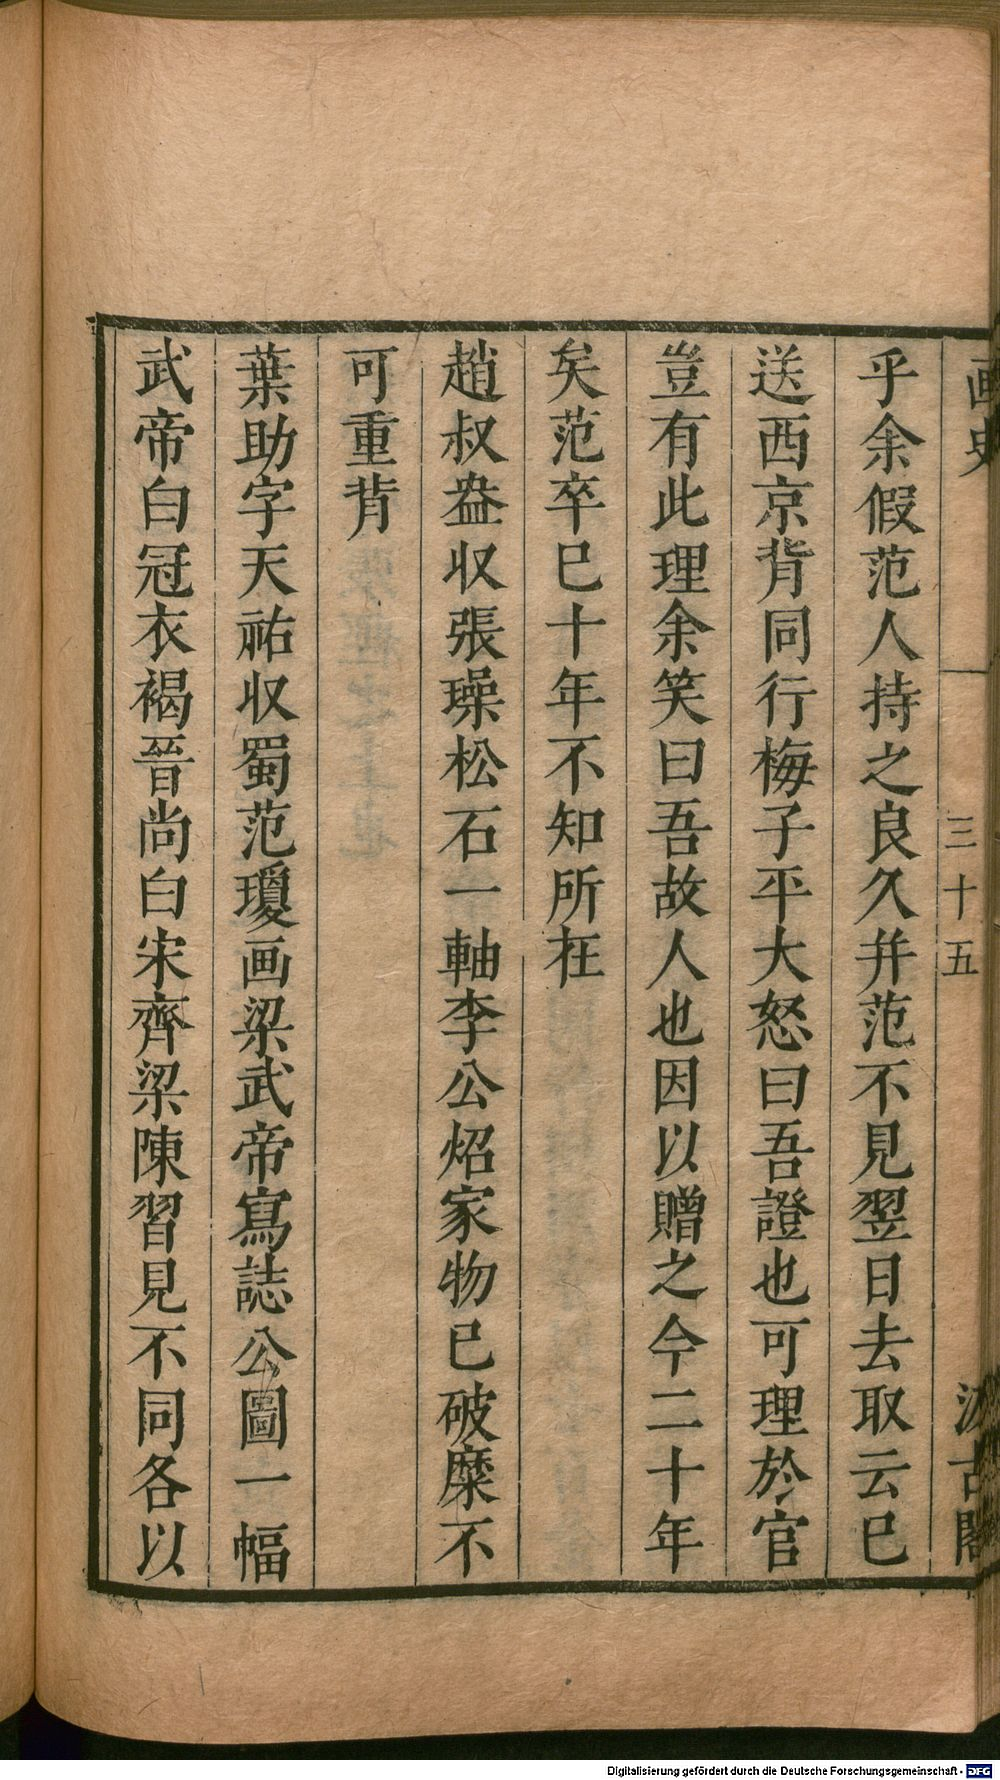 画史 三十五 汲古閣
乎余假范人持之良久并范不見翌日去取云已
送西京背同行梅子平大怒曰吾證也可理於官
豈有此理余笑曰吾故人也因以贈之今二十年
矣范卒巳十年不知所在
趙叔盎収張璪松石一軸李公炤家物已破糜不
可重背
葉助字天祐収蜀范瓊画梁武帝寫誌公圖一幅
武帝白冠衣褐晉尚白宋齊梁陳習見不同各以
Digitalisierung gefördert durch die Deutsche Forschungsgemeinschaft - DFG